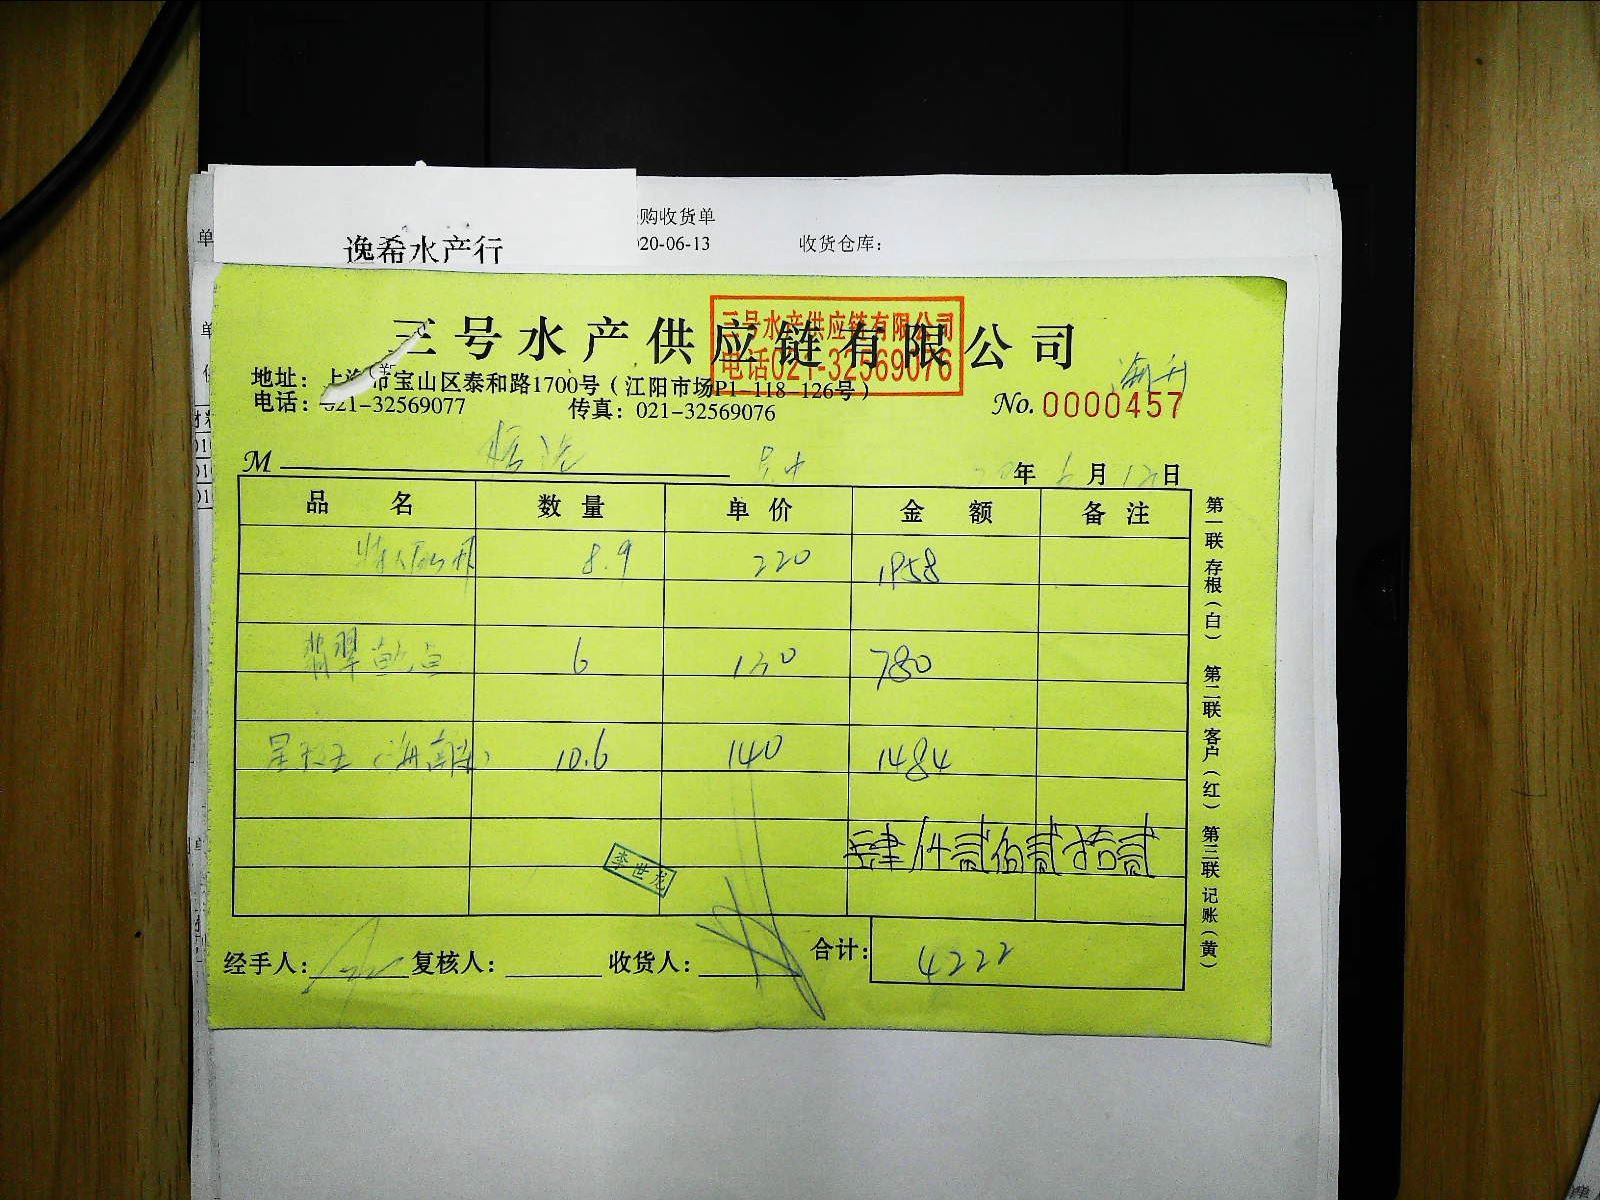 购收货单
逸希水产行
20-06-13 收货仓库:
三号水产供应链有限公司
三号水产供应链有限公司
电话021-32569076
地址: 上海市宝山区泰和路1700号(江阳市场P1-118-126号)
电话: 021-32569077 传真: 021-32569076
No. 0000457
M 年 6 月 12 日
品名 数量 单价 金额 备注
8.9 220 1958
翡翠鲍鱼 6 130 780
10.6 140 1484
肆仟贰佰贰拾贰
李世龙
经手人: 复核人: 收货人: 合计: 4222
第一联 存根(白) 第二联 客户(红) 第三联 记账(黄)